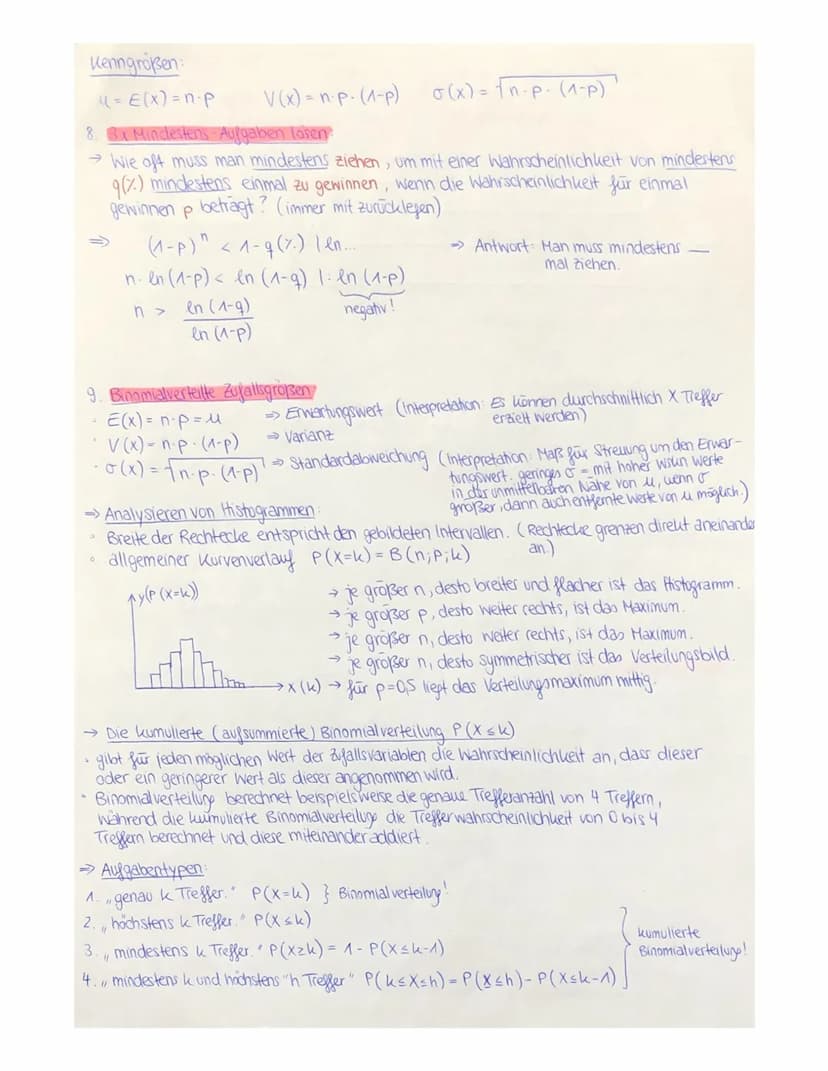 Kenngrößen:
μ = E(x) = n·p V(x) = n·p·(1-p) σ(x) = √n·p·(1-p)
8. 3x Mindestens-Aufgaben lösen:
→ Wie oft muss man mindestens ziehen, um mit einer Wahrscheinlichkeit von mindestens
q(%) mindestens einmal zu gewinnen, wenn die Wahrscheinlichkeit für einmal
gewinnen p beträgt? (immer mit zurücklegen)
⇒ (1-p)ⁿ < 1-q(%) | ln... ⇒ Antwort: Man muss mindestens __
mal ziehen.
n·ln(1-p) < ln(1-q) |: ln(1-p)
negativ!
n > ln(1-q)
ln(1-p)
9. Binomialverteilte Zufallsgrößen
· E(x) = n·p = μ ⇒ Erwartungswert (Interpretation: Es können durchschnittlich X Treffer
erzielt werden)
· V(x) = n·p·(1-p) ⇒ Varianz
· σ(x) = √n·p·(1-p) ⇒ Standardabweichung (Interpretation: Maß für Streuung um den Erwar-
tungswert. geringes σ = mit hoher wskn Werte
in der unmittelbaren Nähe von μ, wenn σ
größer, dann auch entfernte Werte von μ möglich.)
⇒ Analysieren von Histogrammen:
· Breite der Rechtecke entspricht den gebildeten Intervallen. (Rechtecke grenzen direkt aneinander
an.)
· allgemeiner Kurvenverlauf P(X=k) = B(n;p;k)
y(P(x=k))
→ je größer n, desto breiter und flacher ist das Histogramm.
→ je größer p, desto weiter rechts, ist das Maximum.
→ je größer n, desto weiter rechts, ist das Maximum.
→ je größer n, desto symmetrischer ist das Verteilungsbild.
x(k) → für p=0,5 liegt das Verteilungsmaximum mittig.
→ Die kumulierte (aufsummierte) Binomialverteilung P(X≤k)
· gibt für jeden möglichen Wert der Zufallsvariablen die Wahrscheinlichkeit an, dass dieser
oder ein geringerer Wert als dieser angenommen wird.
· Binomialverteilung berechnet beispielsweise die genaue Trefferanzahl von 4 Treffern,
während die kumulierte Binomialverteilung die Trefferwahrscheinlichkeit von 0 bis 4
Treffern berechnet und diese miteinander addiert.
⇒ Aufgabentypen:
1. „genau k Treffer." P(X=k) } Binomialverteilung!
2. „höchstens k Treffer." P(X≤k)
3. „mindestens k Treffer." P(X≥k) = 1-P(X≤k-1)
4. „mindestens k und höchstens "h Treffer" P(k≤X≤h) = P(X≤h)-P(X≤k-1)
kumulierte
Binomialverteilung!